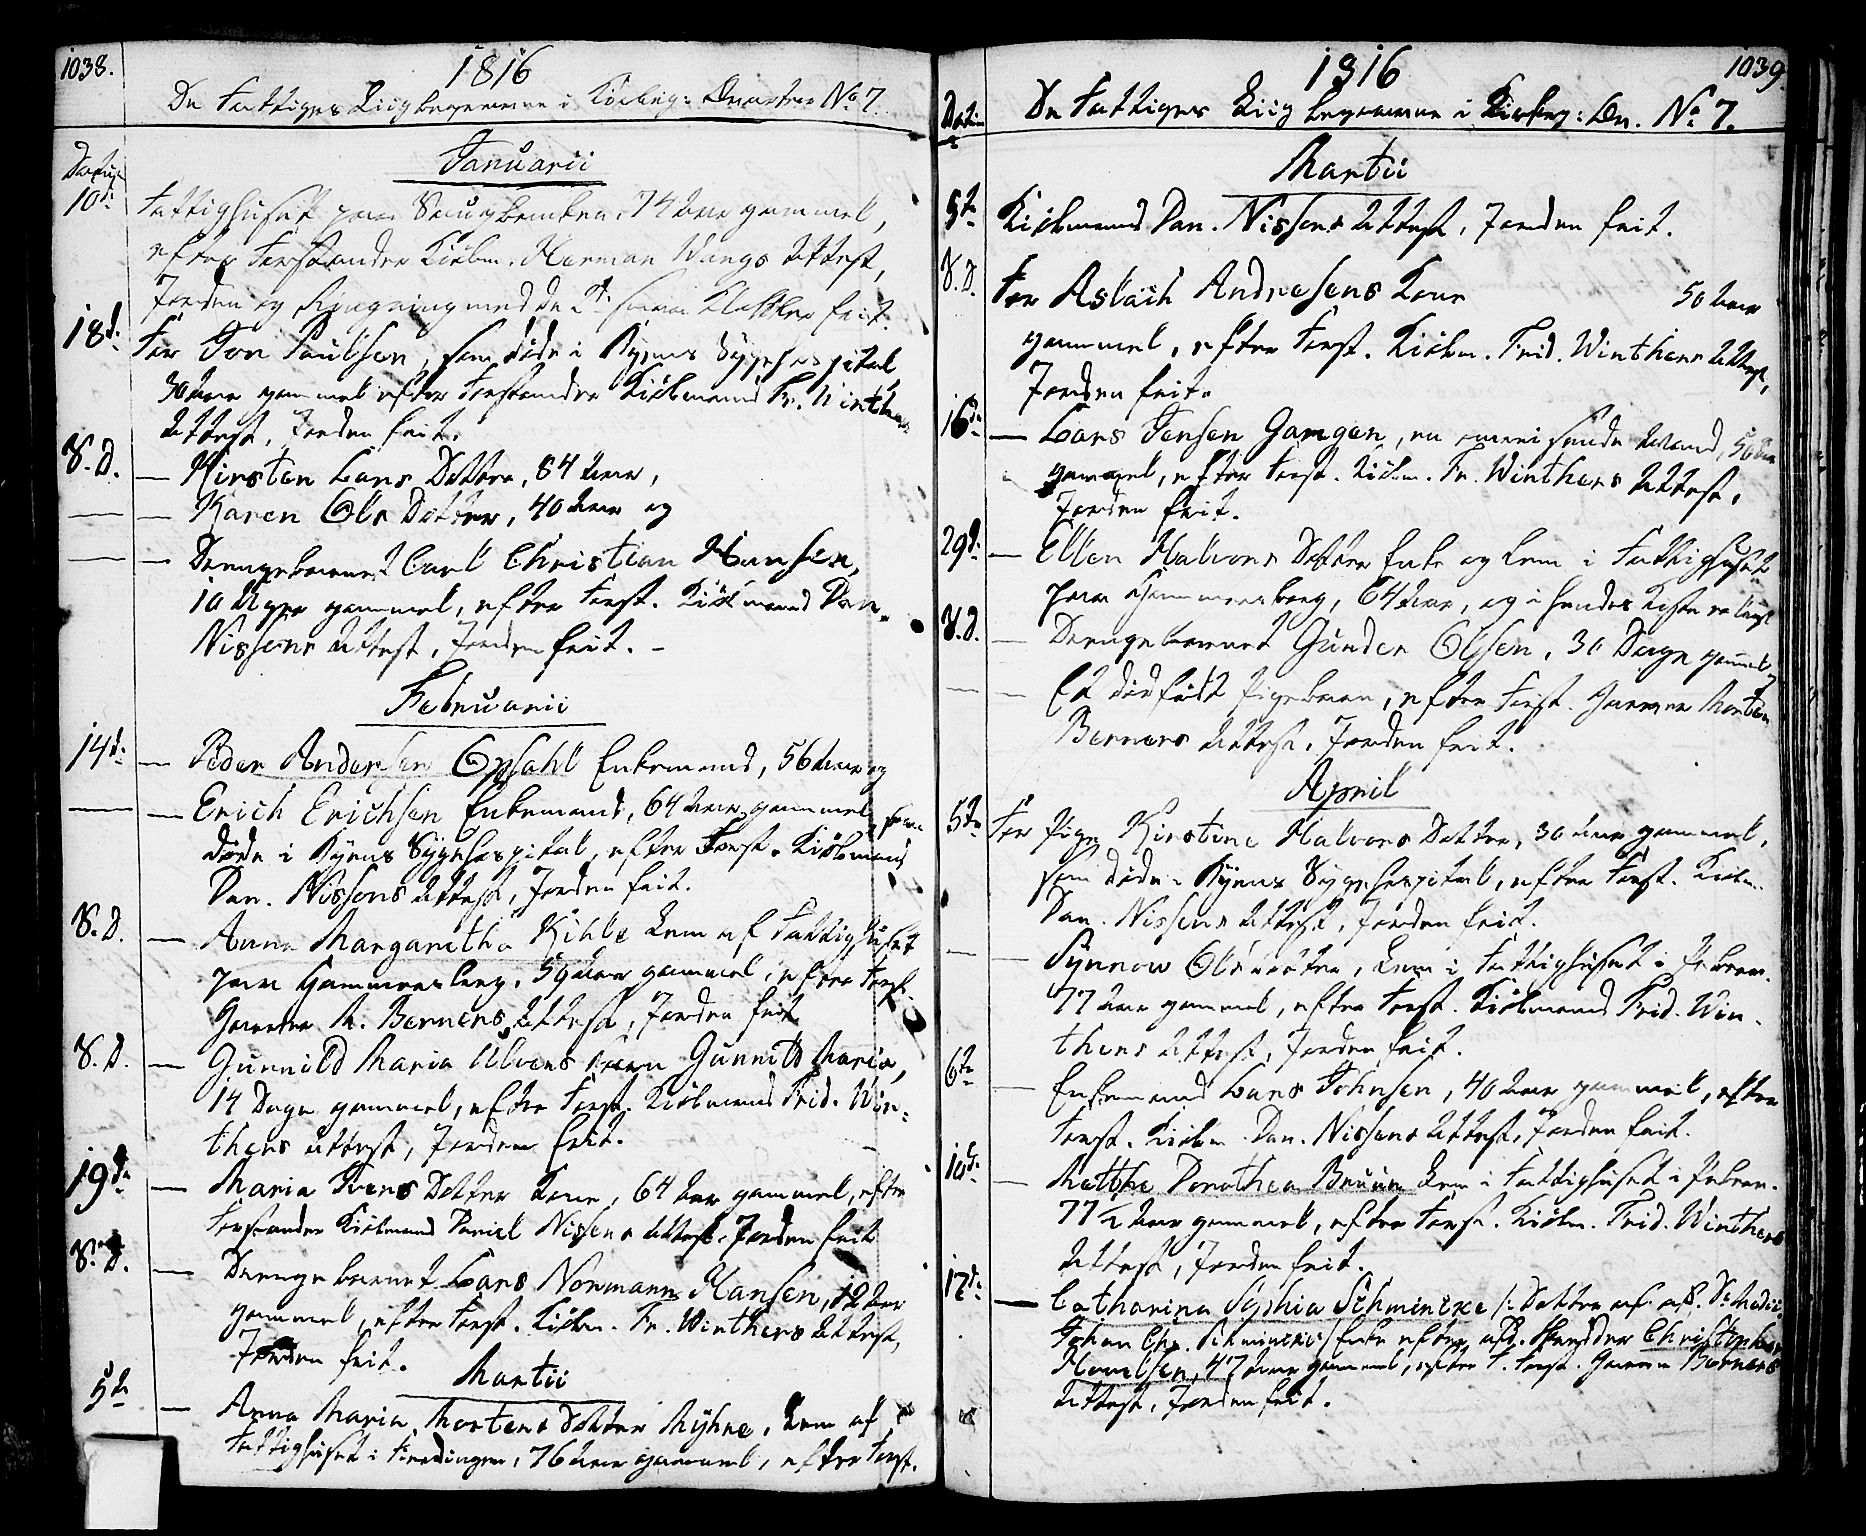 1038.
1816
De Fattiges Liigbegængelse i Kirkeg: Qvarteer No 7.
Datum
Januarii
10de Fattighuset paa Saugbanken, 74 Aar gammel,
efter Forstander Kiøbm. Herman Wangs Attest,
Jorden og Ringning med de 2de smaae Klokker frit.
18de For Jon Paulsen, som døde i Byens Sygehospital
30 Aar gammel efter Forstander Kiøbmand Fr. Winthers
Attest, Jorden frit.
S. D. — Kirsten Lars Datter, 84 Aar,
— — Karen Ols Datter, 40 Aar og
— — Drengebarnet Carl Christian Hansen,
10 Uger gammel, efter Forst. Kiøbmand Dan.
Nissens Attest, Jorden frit. –
Februarii
14de — Peder Andersen Opsahl Enkemand, 56 Aar og
— — Erich Erichsen Enkemand, 64 Aar gammel, som
døde i Byens Sygehospital, efter Forst. Kiøbmand
Dan. Nissens Attest, Jorden frit.
S. D. — Anna Margaretha Kihle Lem af Fattighuset
paa Hammersborg, 59 Aar gammel, efter Forst.
Garver M. Berners Attest, Jorden frit
S. D. — Gunnild Maria Alvens Barn Gunnild Maria,
14 Dage gammel, efter Forst. Kiøbmand Frid. Win-
thers Attest, Jorden frit.
19de — Maria Ivers Datter Kone, 64 Aar gammel, efter
Forstander Kiøbmand Daniel Nissens Attest, Jorden frit
S. D. — Drengebarnet Lars Normann Hansen, 12 Aar
gammel, efter Forst. Kiøbm. Fr. Winthers Attest,
Jorden frit.
Martii
5te — Anna Maria Mortens Datter Myhre, Lem af
Fattighuset i Fierdingen, 76 Aar gammel, efter Forst.
1816
1039.
Datum
De Fattiges Liigbegængelse i Kirkeg: Qv. No 7.
Martii
5te Kiøbmand Dan. Nissens Attest, Jorden frit.
S. D. For Aslach Andresens Kone 50 Aar
gammel, efter Forst. Kiøbm. Frid. Winthers Attest,
Jorden frit.
16de — Lars Jensen Gangen, en Mand, 56 Aar
gammel, efter Forst. Kiøbm. Fr. Winthers Attest,
Jorden frit.
29de — Ellen Halvors Datter Enke og Lem i Fattighuset
paa Hammersborg, 64 Aar, og i hendes Kiste er lagt
S. D. — Drengebarnet Gunder Olsen, 30 Dage gammel,
— — Et dødfødt Pigebarn, efter Forst. Garver Morten
Berners Attest, Jorden frit.
April
5te For Pige Kirstine Halvors Datter, 30 Aar gammel,
som døde i Byens Sygehospital, efter Forst. Kiøbm.
Dan. Nissens Attest, Jorden frit.
— — Synnow Ols Datter, Lem i Fattighuset i Piberv.
77 Aar gammel, efter Forst. Kiøbmand Frid. Win-
thers Attest, Jorden frit.
6te — Enkemand Lars Johnsen, 40 Aar gammel, efter
Forst. Kiøbm. Dan. Nissens Attest, Jorden frit.
10de — Matthe Dorothea Bruun Lem i Fattighuset i Piberv.
77½ Aar gammel, efter Forst. Kiøbm. Frid. Winthers
Attest, Jorden frit.
17de — Catharina Sophia Schmincke /: Datter af afd.
Johan Chr. Schmincke :/ Enke efter afd. Christopher
Haralsen, 47 Aar gammel, efter Forst. Garver Berners
Attest, Jorden frit.